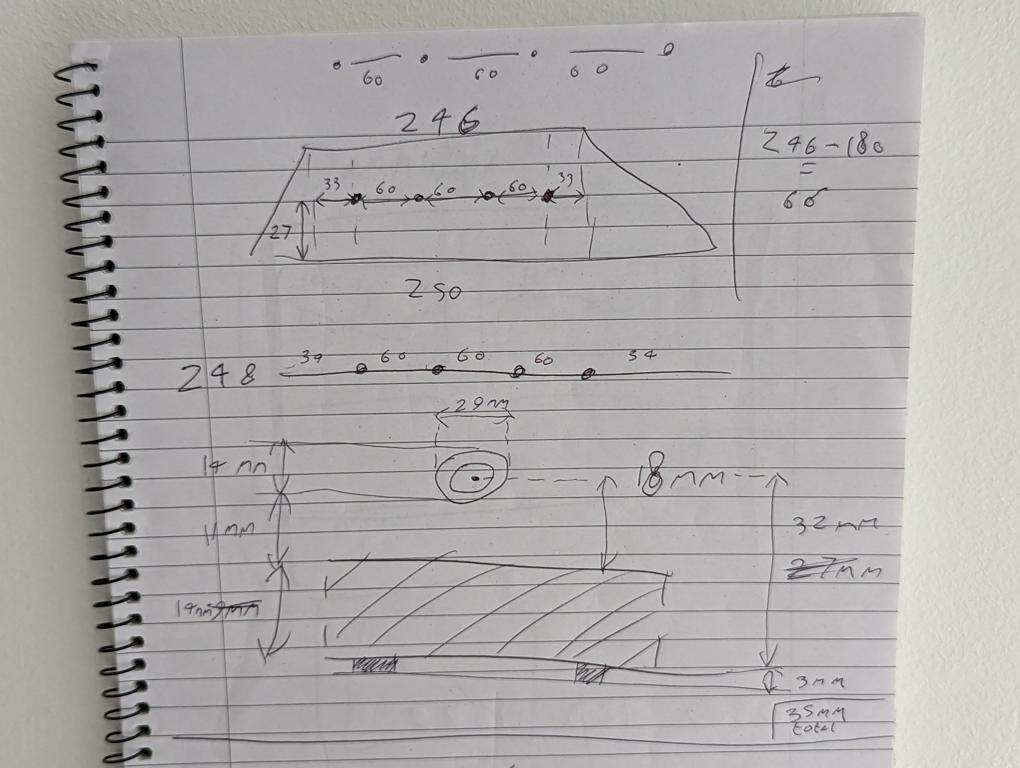 60 60 60
246
246-180
=
66
33 60 60 60 33
27
250
248 34 60 60 60 34
29mm
14 mm
18mm
11mm
32mm
27mm
14mm 9mm
3mm
35mm
total